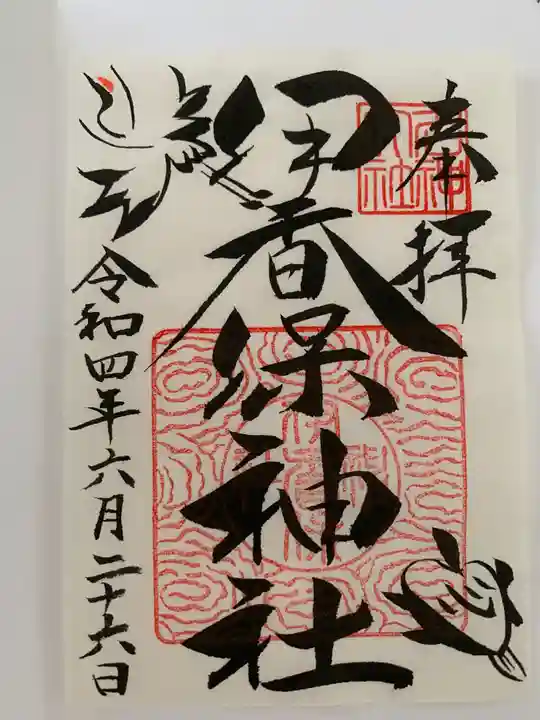 奉拝
伊香保神社
令和四年六月二十六日